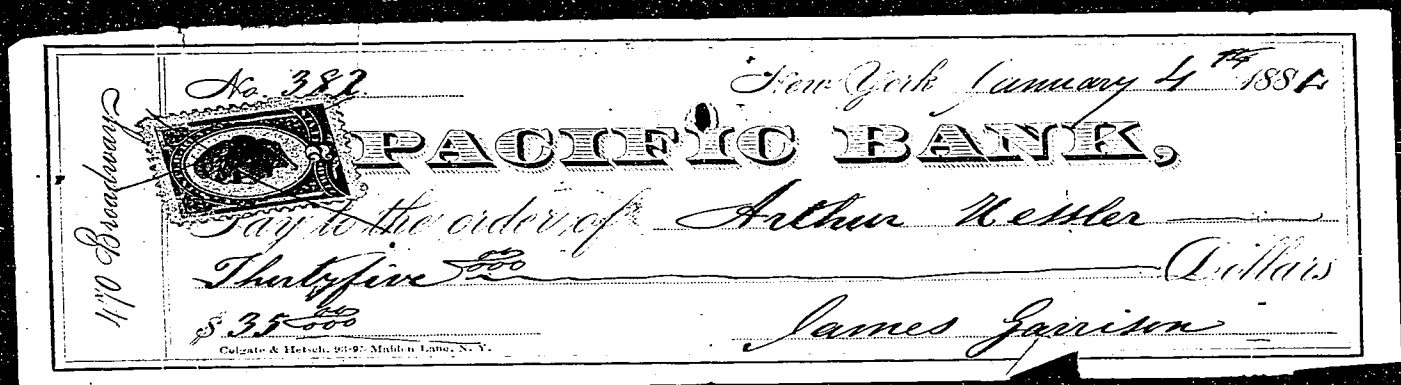 470 Broadway
No. 382.
New York January 4th 1882
PACIFIC BANK,
Pay to the order of Arthur Kessler
Thirtyfive 00/000 Dollars
$ 35 00/000
James Garrison
Colgate & Hetsch, 93-95 Maiden Lane, N. Y.